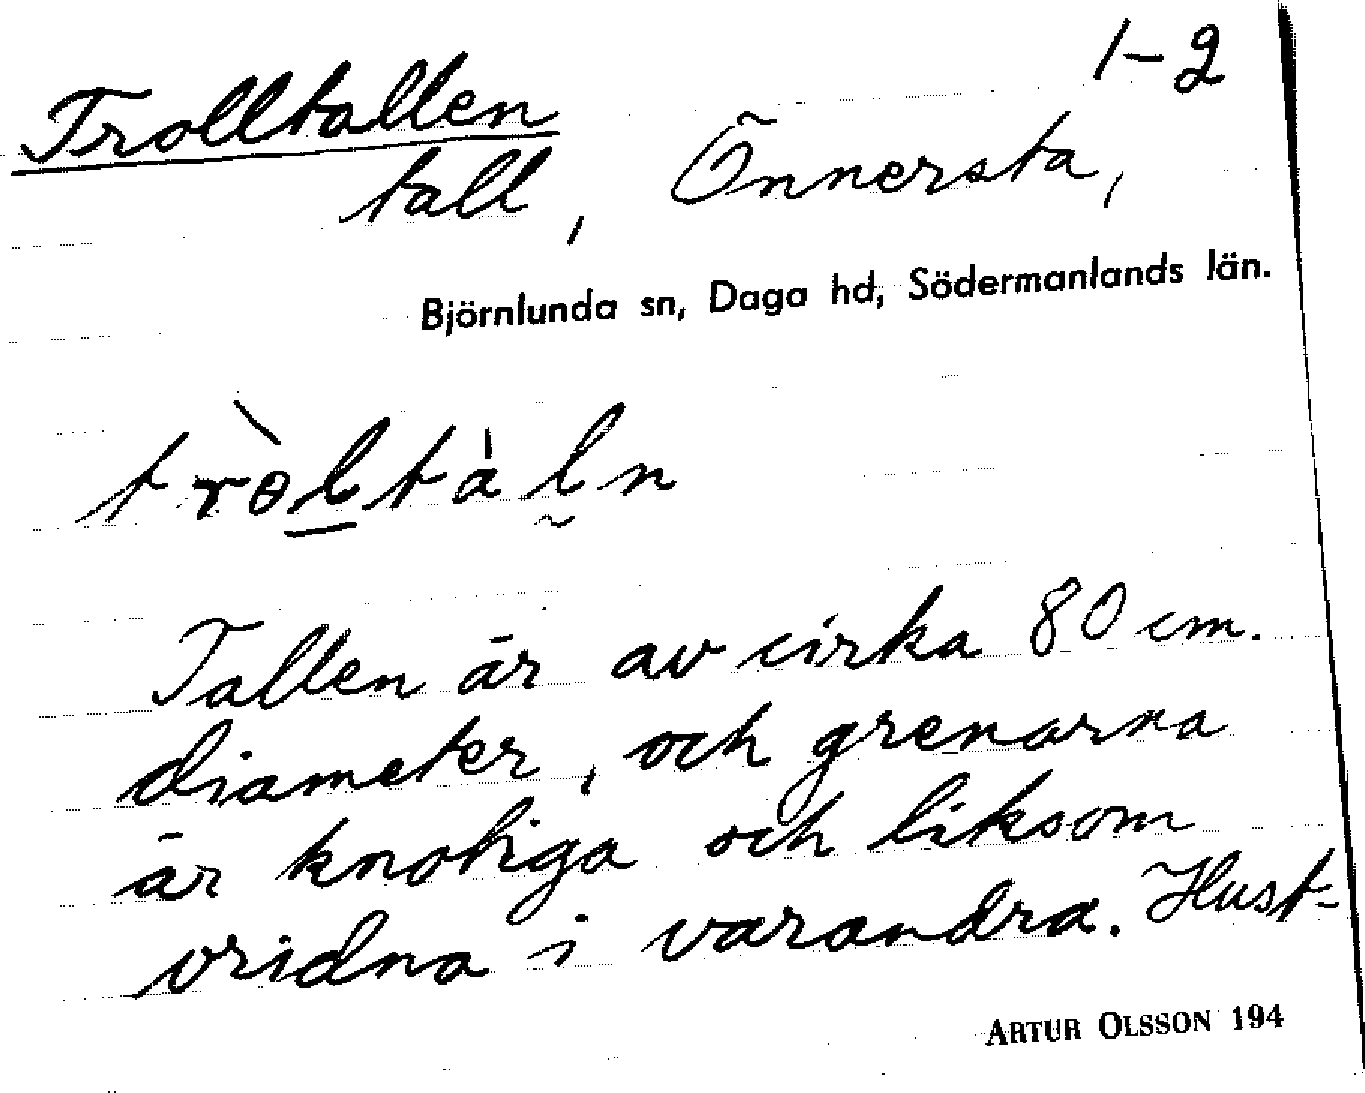 1-2
Trolltallen
tall, Önnersta,
Björnlunda sn, Daga hd, Södermanlands län.
trɵ̀ltáln
Tallen är av cirka 80 cm.
diameter, och grenarna
är knotiga och liksom
vridna i varandra. Hust-
ARTUR OLSSON 194